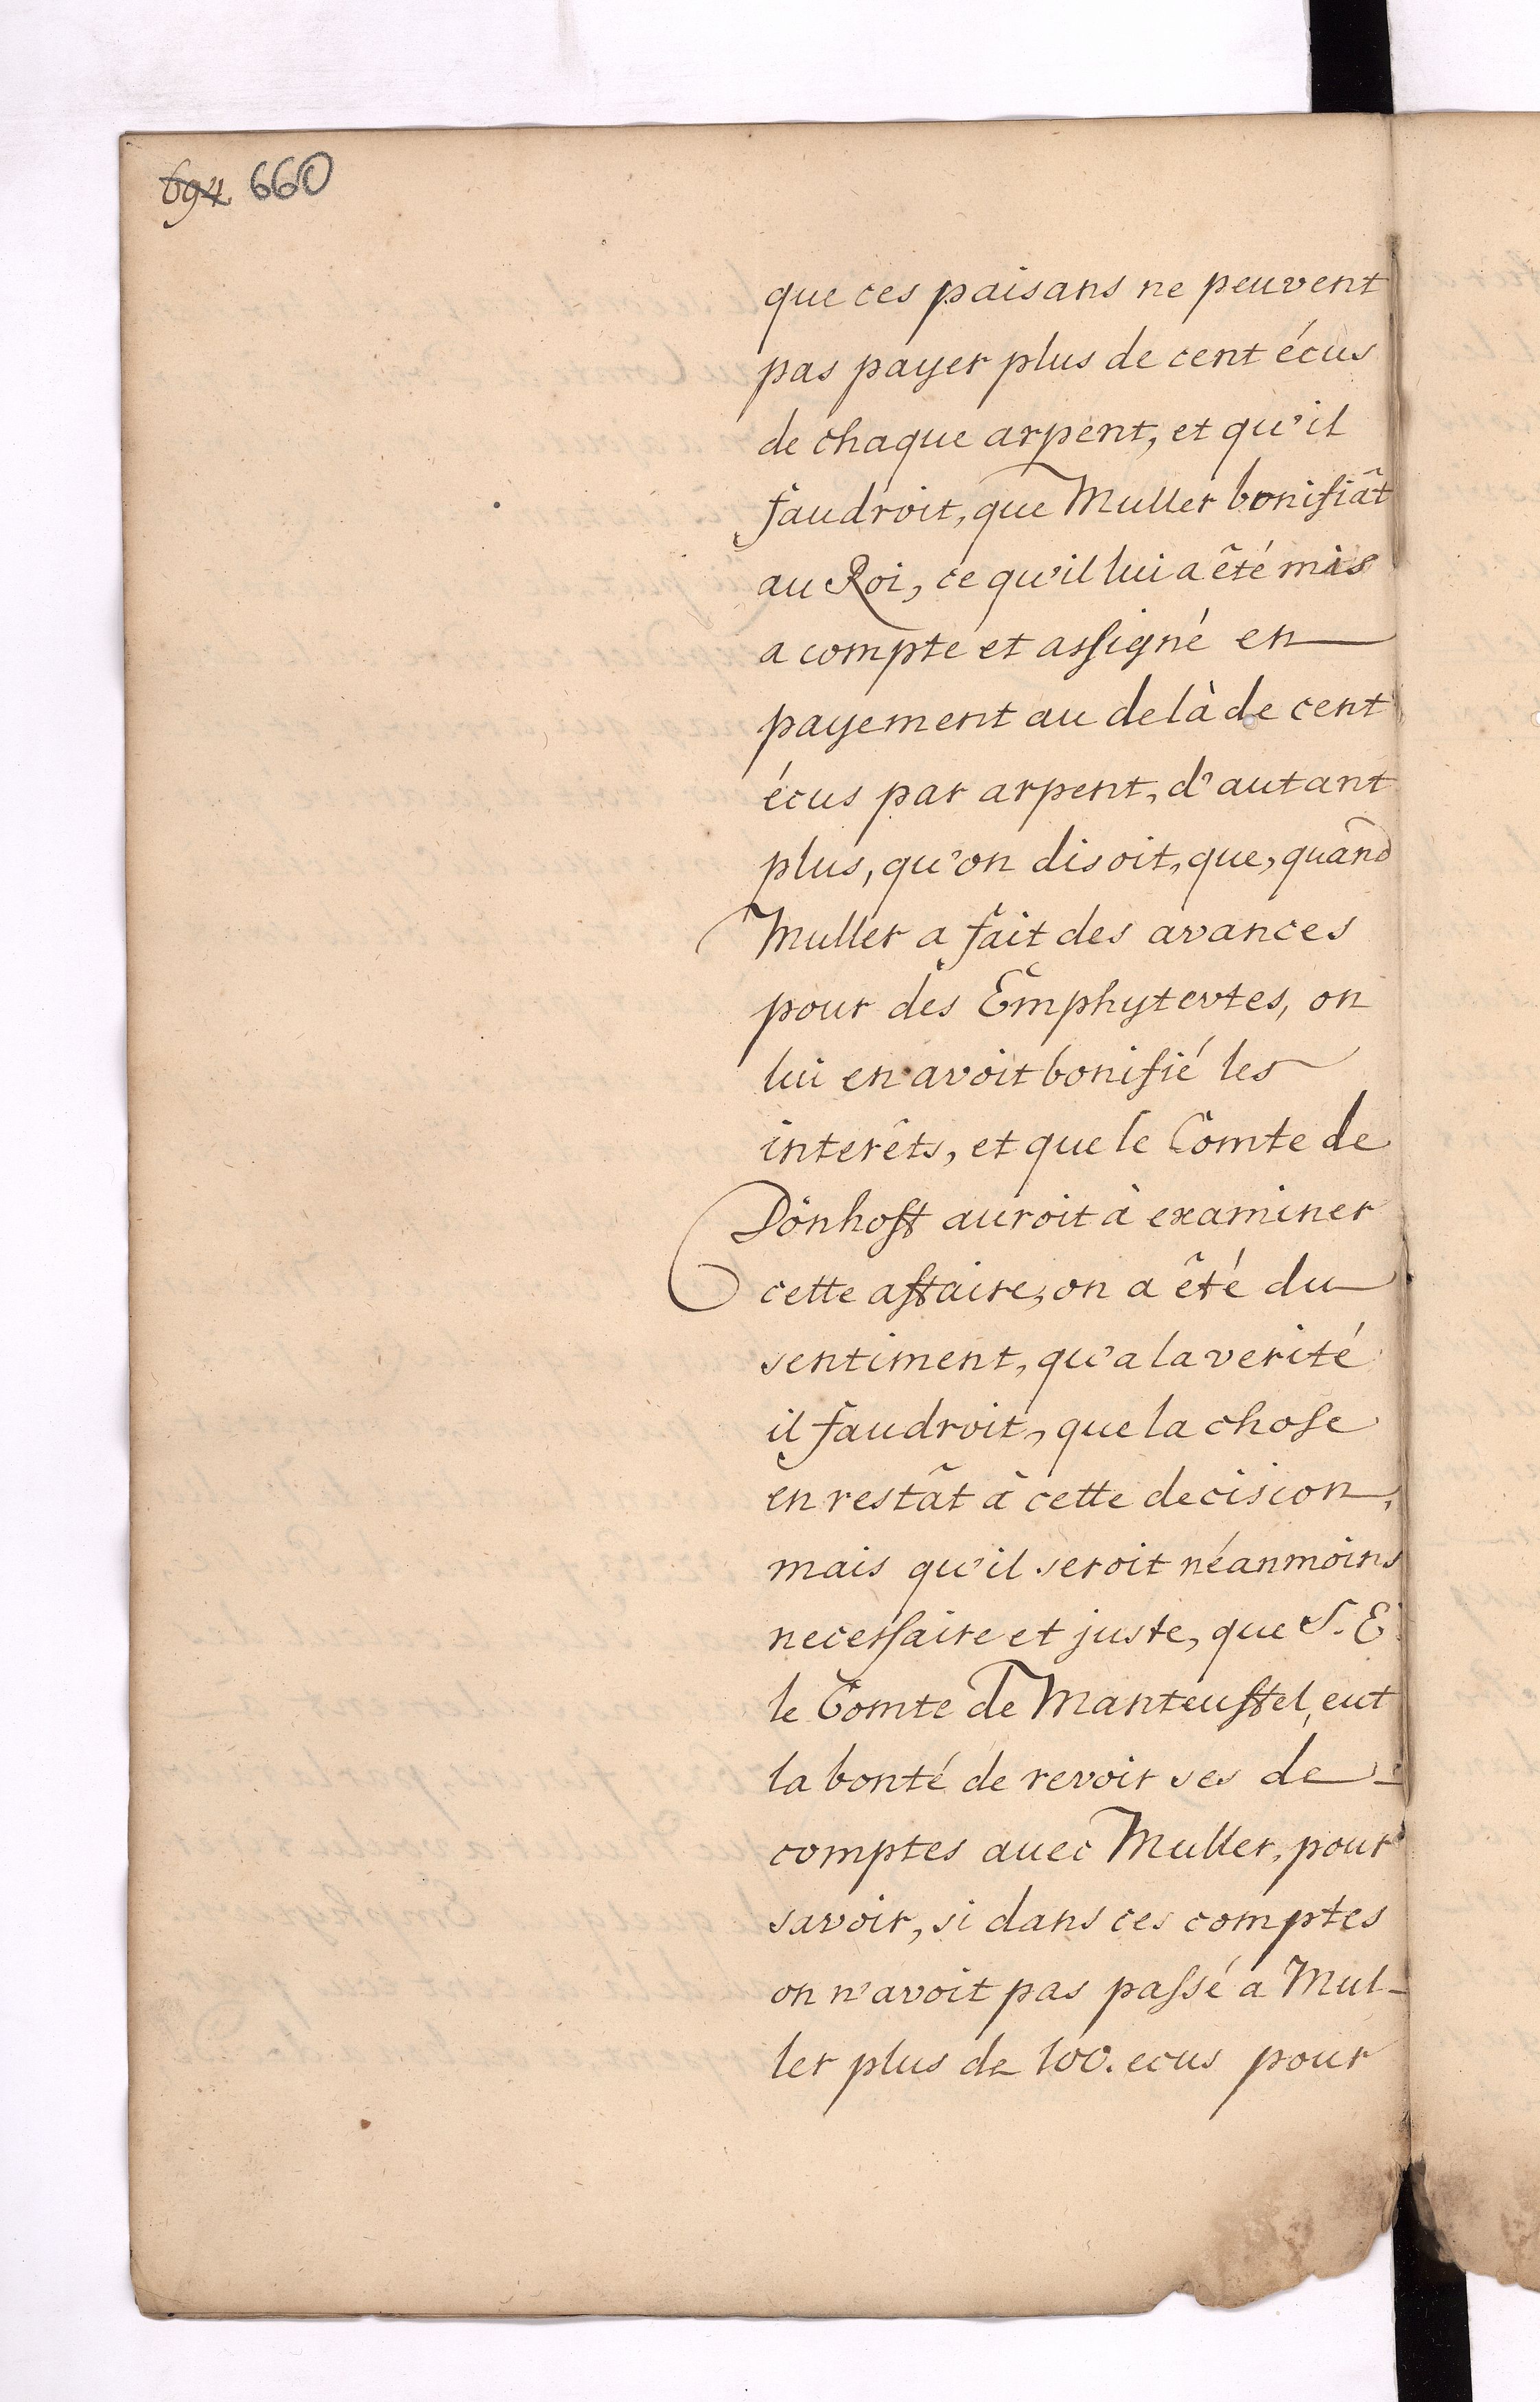 694 660
que ces paisans ne peuvent
pas payer plus de cent écus
de chaque arpent, et qu'il
faudroit, que Muller bonifiât
au Roi, ce qu'il lui a êté mis
a compte et assigné en
payement au delà de cent
écus par arpent, d'autant
plus, qu'on disoit, que, quand
Muller a fait des avances
pour des Emphyteutes, on
lui en avoit bonifié les
interêts, et que le Comte de
Dönhoff auroit à examiner
cette affaire, on a êté du
sentiment, qu'a la verité
il faudroit, que la chose
en restât à cette decision,
mais qu'il seroit néanmoins
necessaire et juste, que S. E.
le Comte de Manteuffel, eut
la bonté de revoir ses de-
comptes avec Muller, pour
savoir, si dans ces comptes
on n'avoit pas passé a Mul-
ler plus de 100. ecus pour